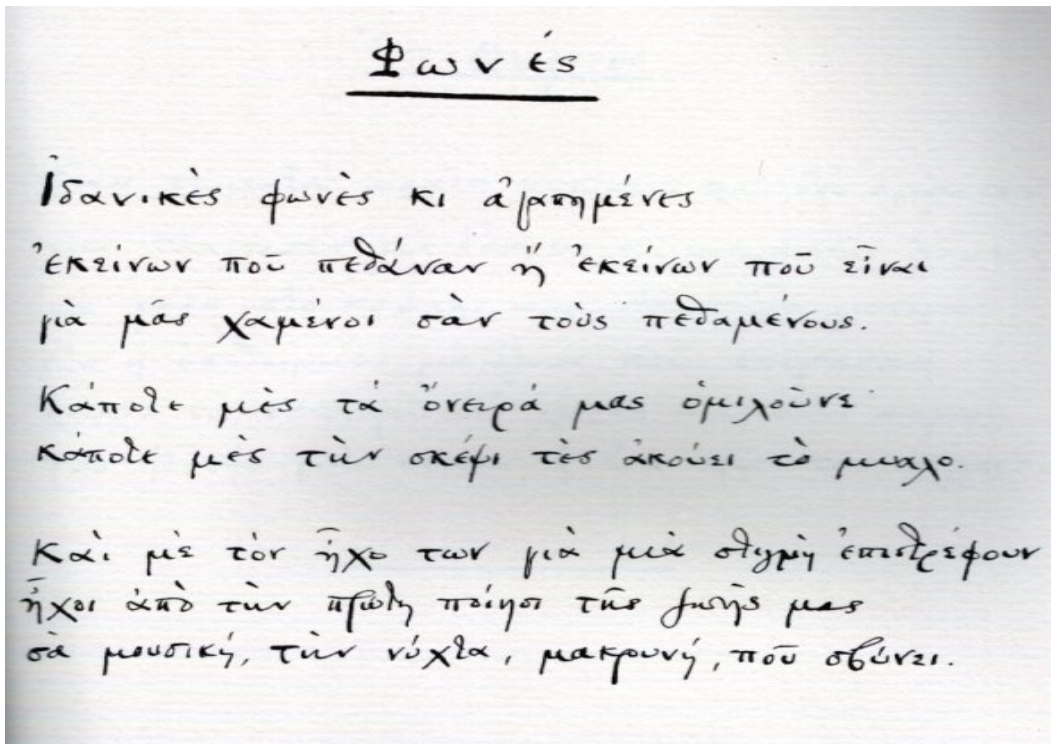 Φωνές
Ἰδανικὲς φωνὲς κι ἀγαπημένες
ἐκείνων ποῦ πεθάναν ἢ ἐκείνων ποῦ εἶναι
γιὰ μᾶς χαμένοι σὰν τοὺς πεθαμένους.
Κάποτε μὲς τὰ ὄνειρά μας ὁμιλοῦνε
κάποτε μὲς τὴν σκέψι τὲς ἀκούει τὸ μυαλο.
Καὶ μὲ τὸν ἦχο των γιὰ μιὰ στιγμὴ ἐπιστρέφουν
ἦχοι ἀπὸ τὴν πρώτη ποίησι τῆς ζωῆς μας
σὰ μουσική, τὴν νύχτα, μακρυνή, ποῦ σβύνει.